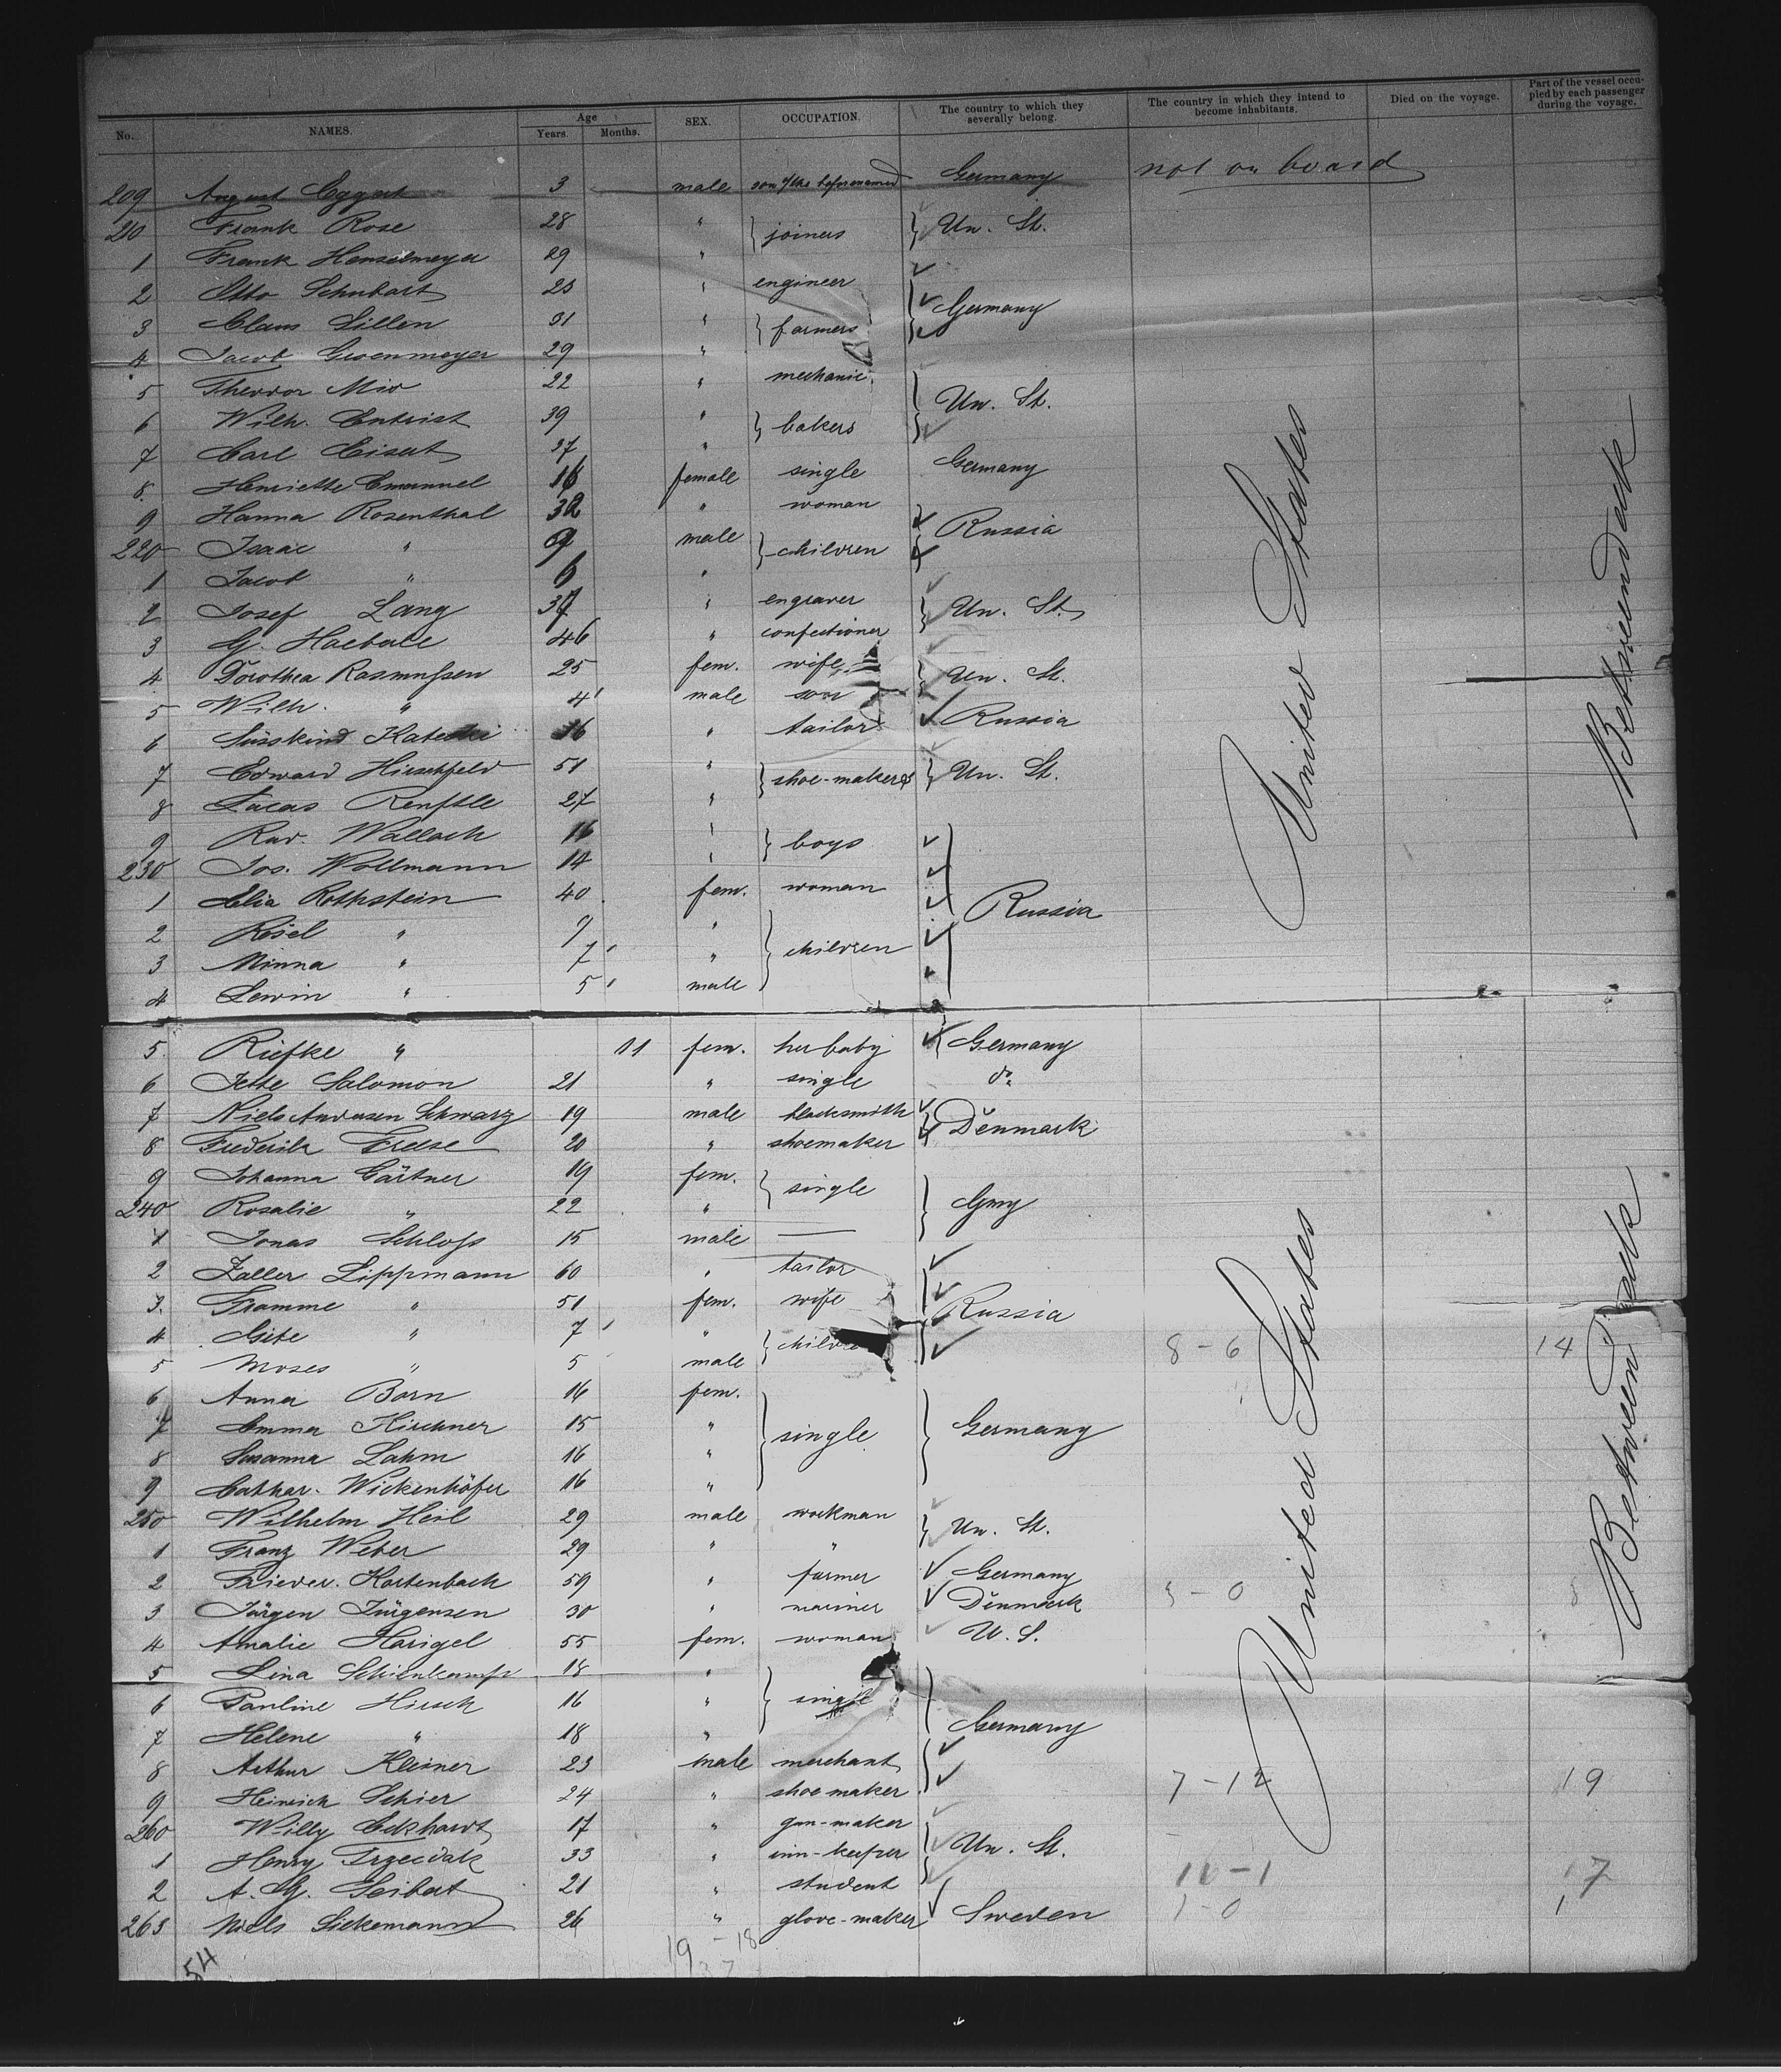 No. NAMES. Age Years. Months. SEX. OCCUPATION. The country to which they severally belong. The country in which they intend to become inhabitants. Died on the voyage. Part of the vessel occupied by each passenger during the voyage.
209 August Eggert 3 male son of the beforenamed Germany not on board
210 Frank Rose 28 " joiners Un. St.
1 Frank Henselmeyer 29 "
2 Otto Schubart 23 " engineer
3 Claus Lillen 31 " farmers Germany
4 Jacob 29 "
5 Theodor 22 " mechanic
6 Wilh. 39 " bakers Un. St.
7 Carl Eisert 37 "
8 Henriette Emanuel 16 female single Germany
9 Hanna Rosenthal 32 " woman
220 Isaac " 9 male children Russia
1 Jacob " 6 "
2 Josef Lang 37 " engraver Un. St.
3 G. Haeberle 46 " confectioner
4 Dorothea Rasmussen 25 fem. wife Un. St.
5 Wilh. " 4 male son
6 Süsskind 16 " tailor Russia
7 Edward Hirschfeld 51 " shoe-makers Un. St.
8 Lucas Renftle 27 "
9 Rav. Wallach 16 " boys
230 Jos. Wollmann 14 "
1 Elia Rothstein 40 fem. woman Russia
2 Resel " 9 " children
3 Minna " 7 "
4 Lewin " 5 male
5 Riefke " 11 fem. her baby Germany
6 Jette Salomon 21 " single do
7 Niels Andersen Schwarz 19 male blacksmith Denmark
8 Frederik Freese 20 " shoemaker
9 Johanna Gärtner 19 fem. single
240 Rosalie " 22 " Gmy
1 Jonas Schloss 15 male —
2 Zaller Lippmann 60 " tailor
3. Framme " 51 fem. wife Russia
4 Gite " 7 " children 8-6 14
5 Moses " 5 male
6 Anna Born 16 fem.
7 Emma Kirchner 15 " single Germany
8 Susanna Lahm 16 "
9 Cathar. Wickenhöfer 16 "
250 Wilhelm Heil 29 male workman Un. St.
1 Franz Weber 29 " "
2 Frieder. Kortenbach 59 " farmer Germany
3 Jürgen Jürgensen 30 " mariner Denmark
4 Amalie Harigel 55 fem. woman U. S.
5 Lina Schienkamp 18 "
6 Pauline Hirsch 16 " single
7 Helene " 18 " Germany
8 Arthur Kleiner 23 male merchant
9 Heinrich Schier 24 " shoemaker 7-12 19
260 Willy Eckhardt 17 " gun-maker
1 Henry Trzecdak 33 " inn-keeper Un. St.
2 A. G. Seibert 21 " student 11-1 17
263 Niels Siekemann 26 " glove-maker Sweden 1-0 1
United States
Betweendeck
United States
Betweendeck
54
19-18
37